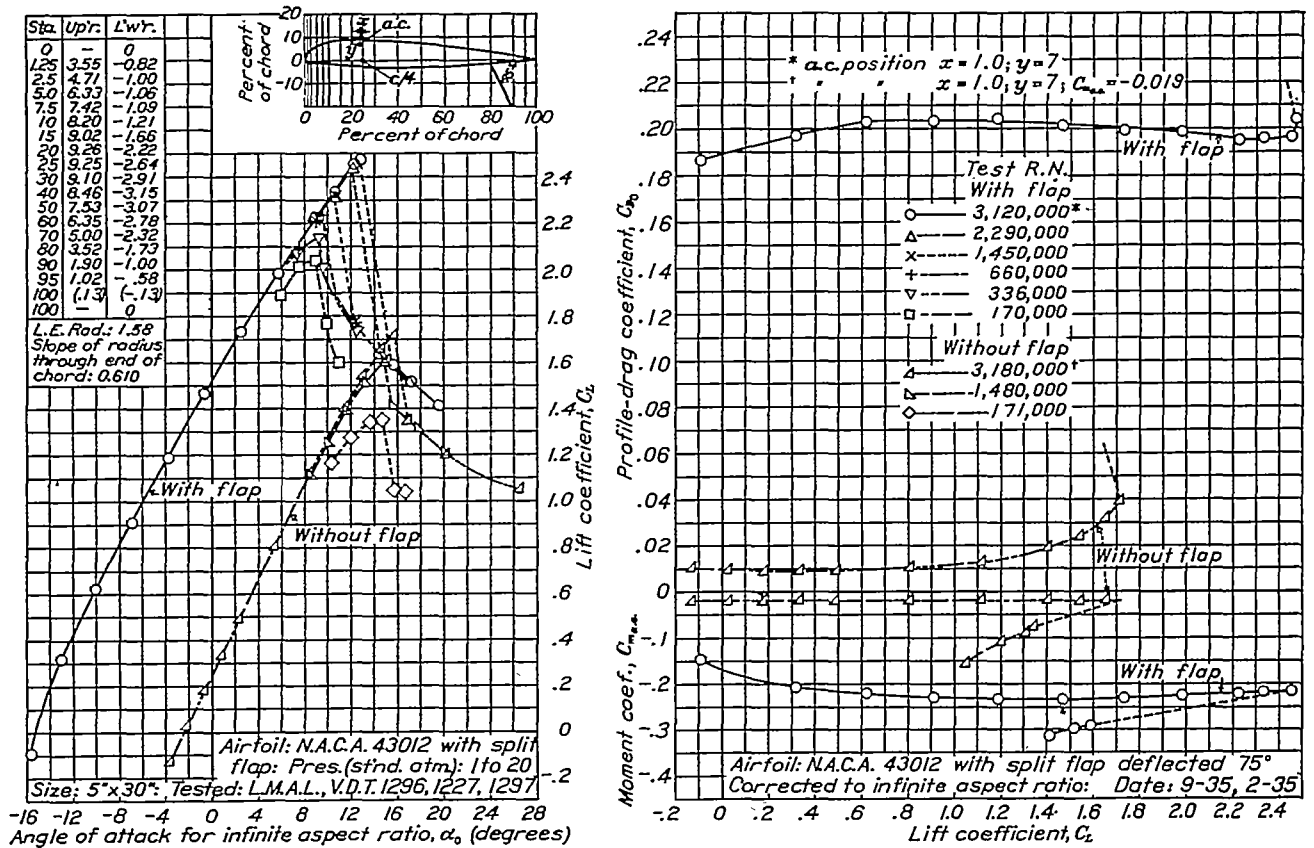 Sta. Up'r. L'w'r.
0 — 0
1.25 3.55 -0.82
2.5 4.71 -1.00
5.0 6.33 -1.06
7.5 7.42 -1.09
10 8.20 -1.21
15 9.02 -1.66
20 9.26 -2.22
25 9.25 -2.64
30 9.10 -2.91
40 8.46 -3.15
50 7.53 -3.07
60 6.35 -2.78
70 5.00 -2.32
80 3.52 -1.73
90 1.90 -1.00
95 1.02 -.58
100 (.13) (-.13)
100 — 0
L.E. Rad.: 1.58
Slope of radius
through end of
chord: 0.610
Percent
of chord
20
10
0
-10
a.c.
c/4
0 20 40 60 80 100
Percent of chord
2.4
2.2
2.0
1.8
1.6
1.4
1.2
1.0
.8
.6
.4
.2
0
-.2
Lift coefficient, C_L
With flap
Without flap
Airfoil: N.A.C.A. 43012 with split
flap: Pres. (st'nd. atm): 1 to 20
Size: 5"x30": Tested: L.M.A.L., V.D.T. 1296, 1227, 1297
-16 -12 -8 -4 0 4 8 12 16 20 24 28
Angle of attack for infinite aspect ratio, α₀ (degrees)
.24
.22
.20
.18
.16
.14
.12
.10
.08
.06
.04
.02
0
-.1
-.2
-.3
-.4
Profile-drag coefficient, C_D₀
Moment coef., C_m a.c.
* a.c. position x = 1.0; y = 7
† " " x = 1.0; y = 7; C_m a.c. = -0.019
With flap
Test R.N.
With flap
3,120,000*
2,290,000
1,450,000
660,000
336,000
170,000
Without flap
3,180,000†
1,480,000
171,000
Without flap
With flap
Airfoil: N.A.C.A. 43012 with split flap deflected 75°
Corrected to infinite aspect ratio: Date: 9-35, 2-35
-.2 0 .2 .4 .6 .8 1.0 1.2 1.4 1.6 1.8 2.0 2.2 2.4
Lift coefficient, C_L